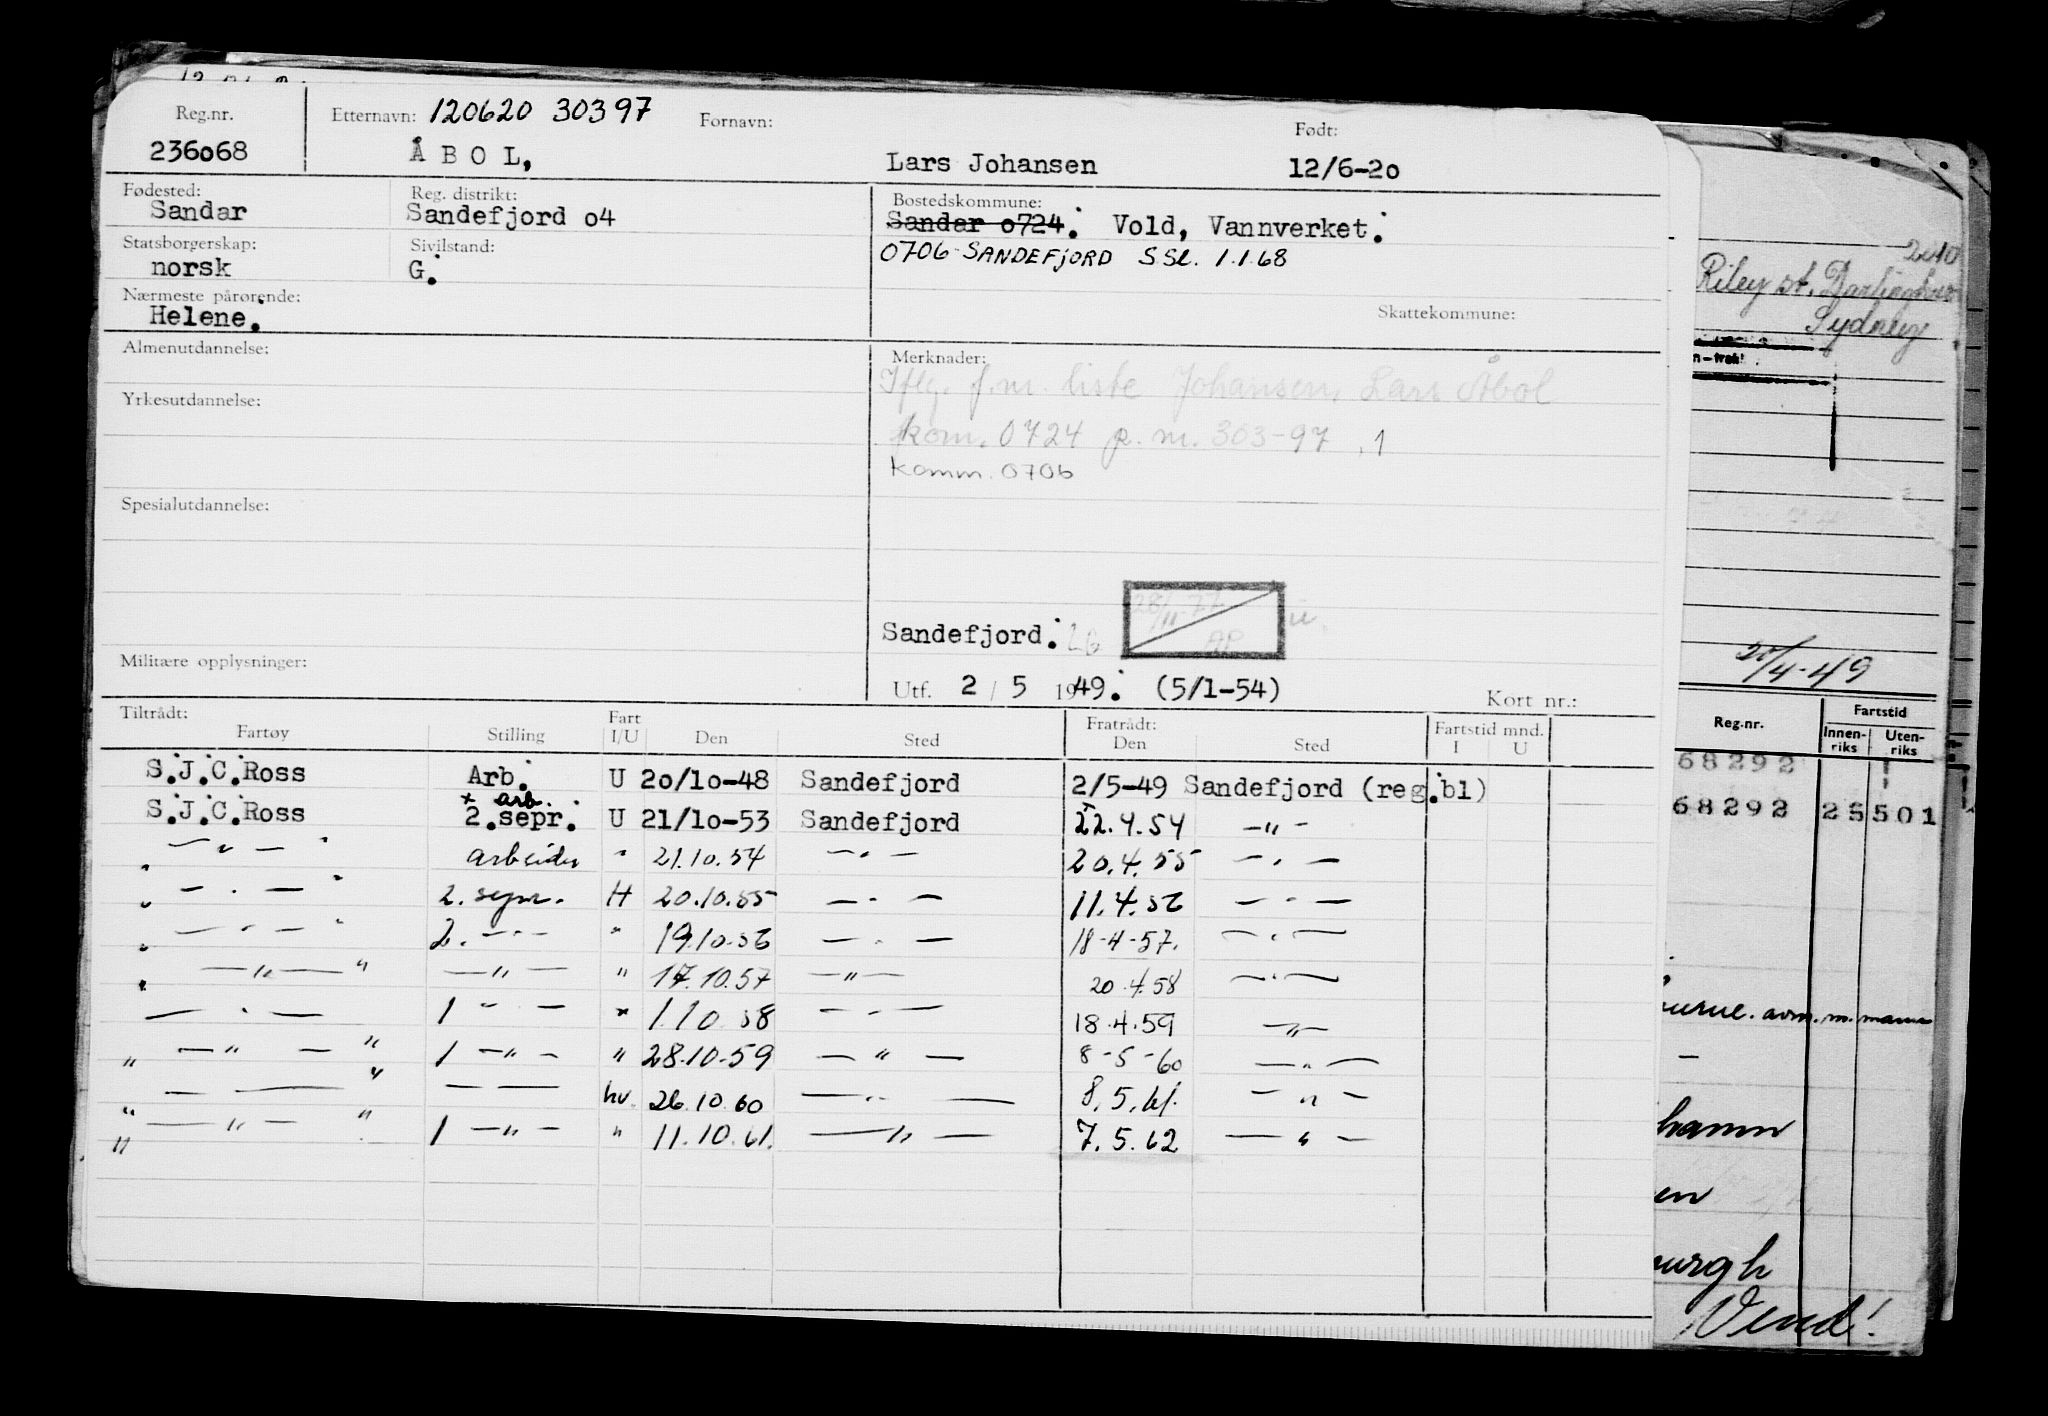 Reg.nr. Etternavn: 120620 30397 Fornavn: Født:
236o68 ÅBOL, Lars Johansen 12/6-2o
Fødested: Reg. distrikt: Bostedskommune:
Sandar Sandefjord o4 Sandar o724. Vold, Vannverket.
Statsborgerskap: Sivilstand: 0706 SANDEFJORD S.Sl. 1.1.68
norsk G.
Nærmeste pårørende: Skattekommune:
Helene.
Almenutdannelse: Merknader:
Iflg. f.m. liste Johansen, Lars Åbol
Yrkesutdannelse:
kom. 0724 p.m. 303-97, 1
komm. 0706
Spesialutdannelse:
28/11-77
Sandefjord. LG AP
Militære opplysninger:
Utf. 2 / 5 1949. (5/1-54) Kort nr.:
Tiltrådt: Fart Fratrådt: Fartstid mnd.
Fartøy Stilling I/U Den Sted Den Sted I U
S.J.C.Ross Arb. U 2o/1o-48 Sandefjord 2/5-49 Sandefjord (reg.bl)
+ arb.
S.J.C.Ross 2.sepr. U 21/1o-53 Sandefjord 22.4.54 —„—
„ —„— " arbeider " 21.10.54 —„— 20.4.55 —„—
„ —„— " 2. sepr. H 20.10.55 —„— 11.4.56 —„—
„ —„— " 2. —"— " 19.10.56 —„— 18-4-57. —„—
„ —„— " —„— " 17.10.57 —„— 20.4.58 —„—
—„— 1 —"— " 1.10.58 —„— 18.4.59 —„—
„ —„— " 1 —„— " 28.10.59 —„— 8-5-60 —„—
— — " — — hv. 26.10.60 —„— 8.5.61. —„—
" —„— " 1 —„— " 11.10.61. —„— 7.5.62 —„—
„
2010
Riley st. Darlinghurst
Sydney
4-49
Reg.nr. Fartstid
Innen-riks Uten-riks
68292
68292 25 501
Vend!